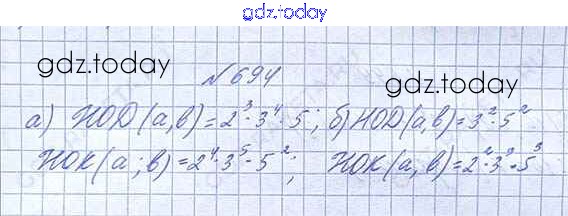 gdz.today
gdz.today
№ 694
gdz.today
а) НОД(а,в)=2³·3⁴·5; б) НОД(а,в)=3²·5²
НОК(а;в)=2⁴·3⁵·5²; НОК(а,в)=2²·3³·5³